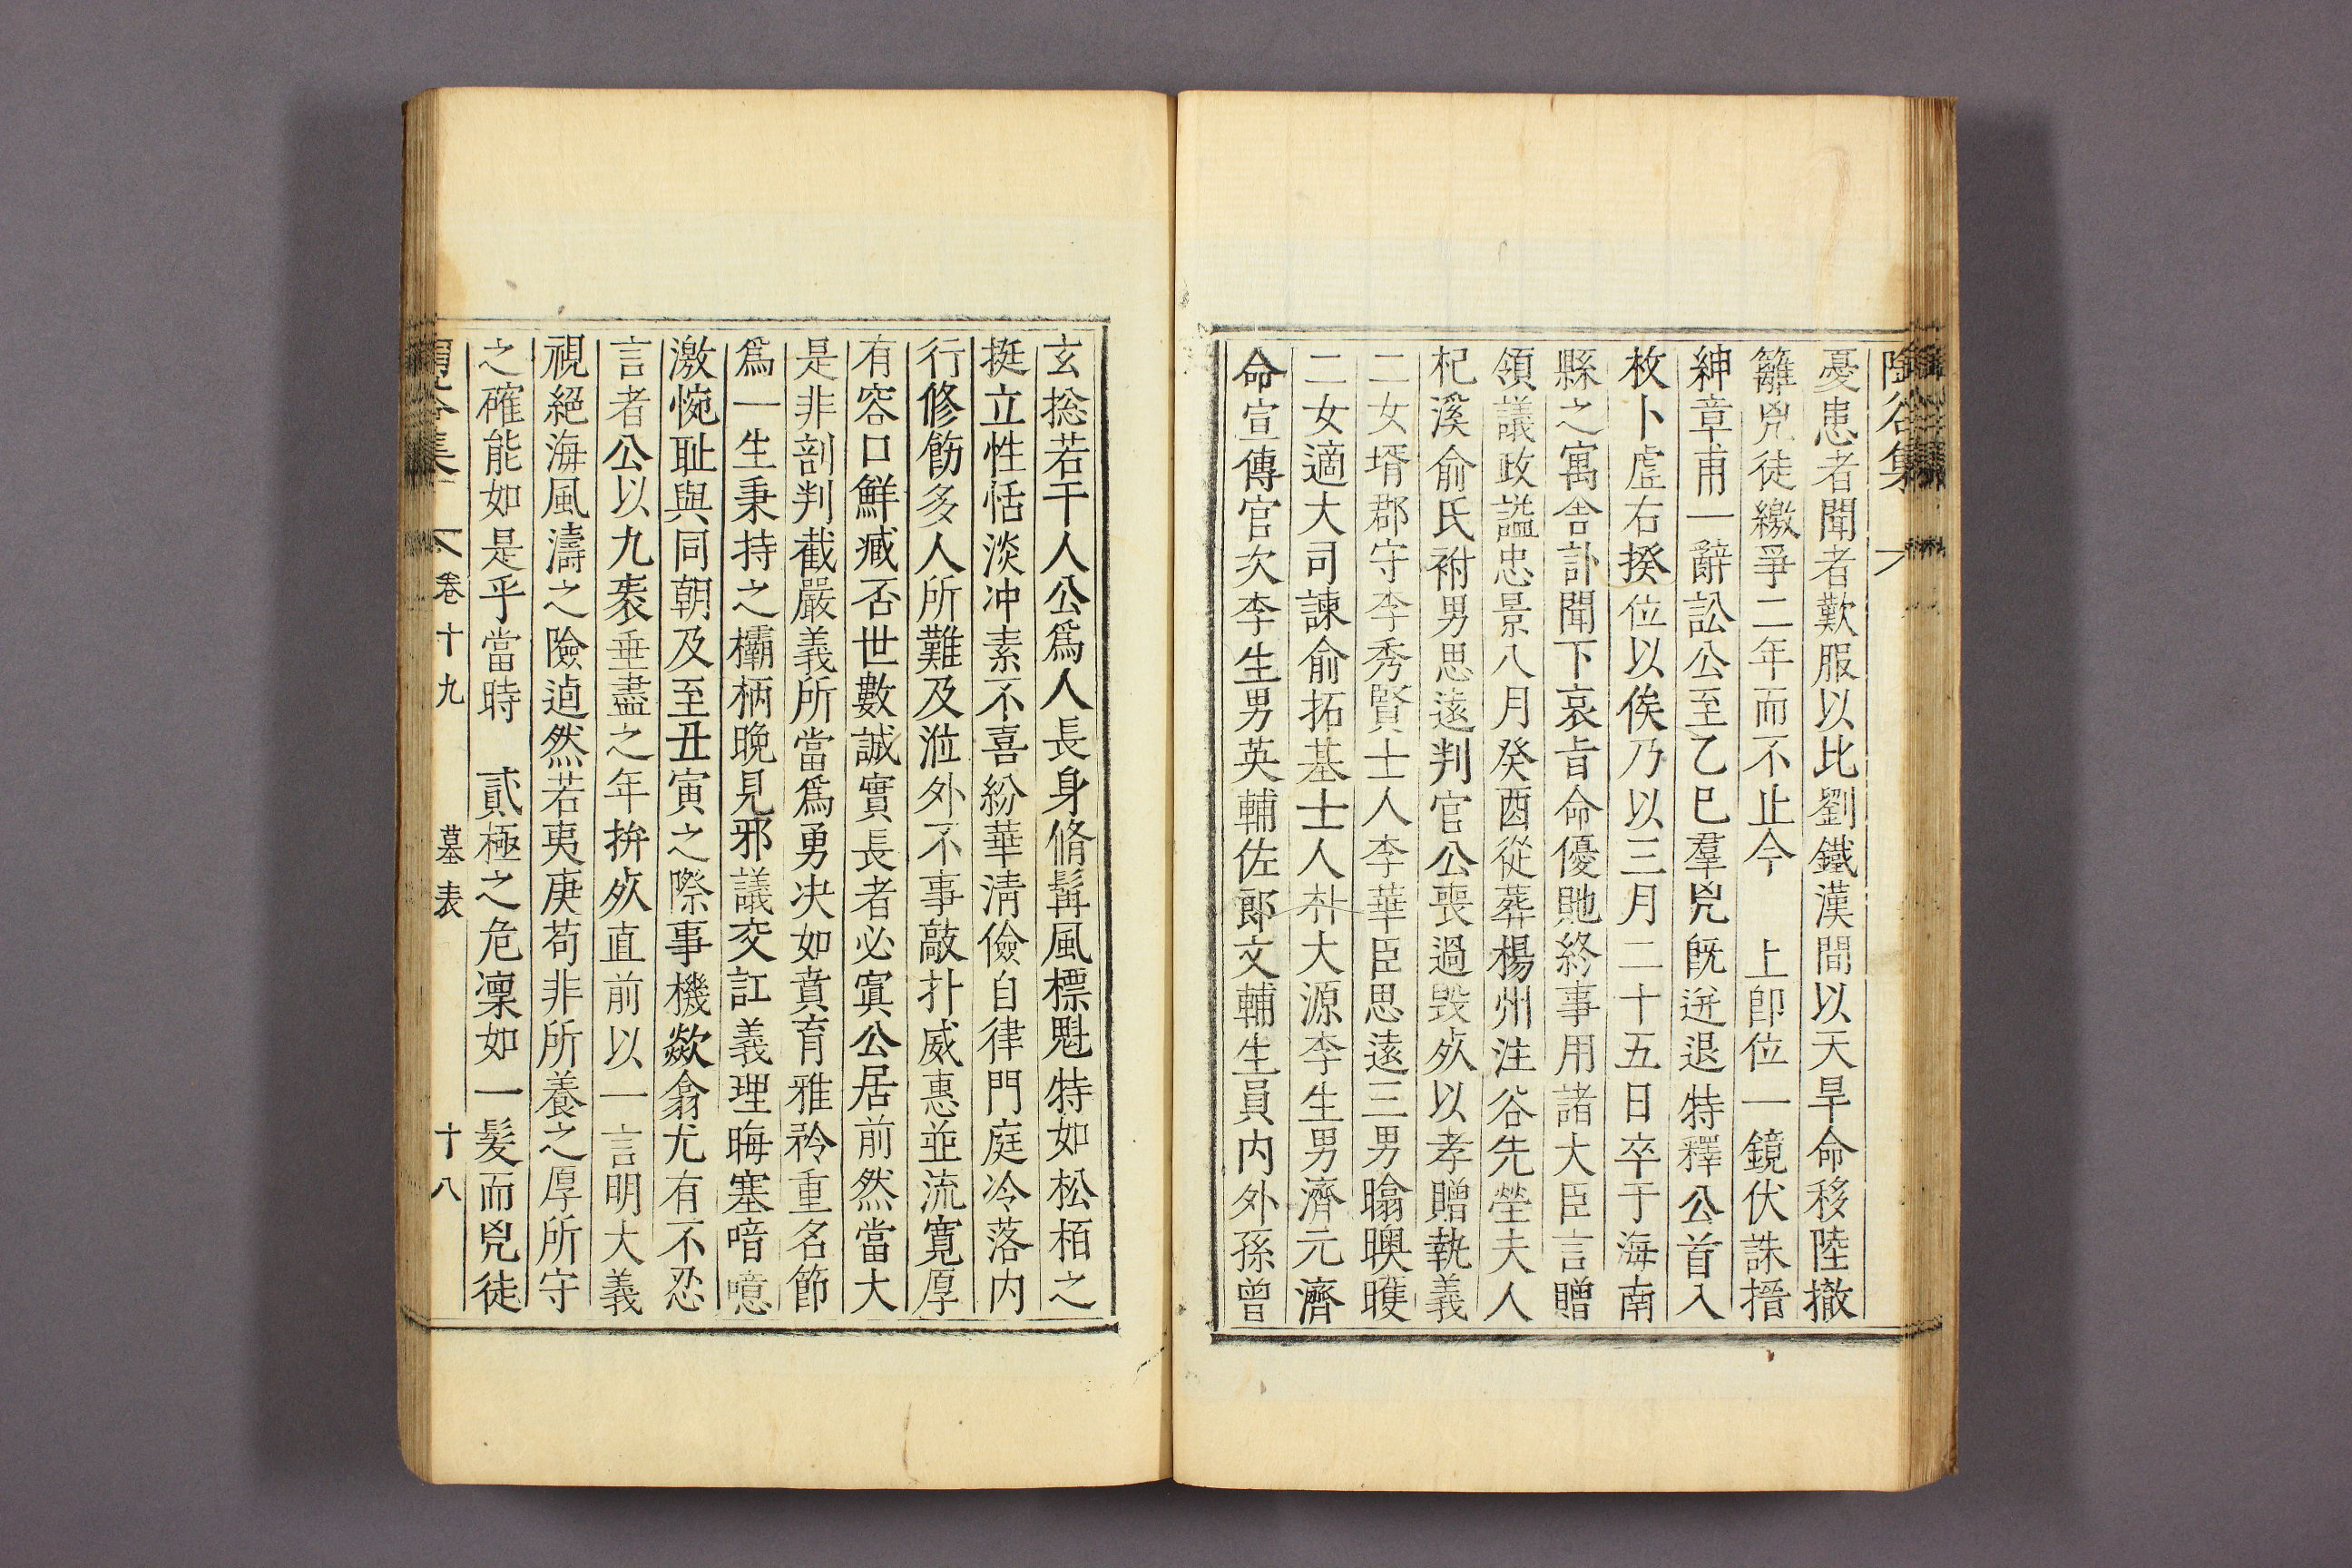 陰谷集
憂患者聞者歎服以比劉鐵漢間以天旱命移陸撤
籬兇徒繳爭二年而不止今　上卽位一鏡伏誅搢
紳章甫一辭訟公至乙巳羣兇旣迸退特釋公首入
枚卜虛右揆位以俟乃以三月二十五日卒于海南
縣之寓舍訃聞下哀旨命優貤終事用諸大臣言贈
領議政諡忠景八月癸酉從葬楊州注谷先塋夫人
杞溪俞氏祔男思遠判官公喪過毁歿以孝贈執義
二女壻郡守李秀賢士人李華臣思遠三男㬓㬔㬦
二女適大司諫俞拓基士人朴大源李生男濟元濟
命宣傳官次李生男英輔佐郞文輔生員內外孫曾
玄捴若干人公爲人長身脩髯風標魁特如松栢之
挺立性恬淡冲素不喜紛華淸儉自律門庭冷落內
行修飭多人所難及涖外不事敲扑威惠並流寬厚
有容口鮮臧否世數誠實長者必寘公居前然當大
是非剖判截嚴義所當爲勇决如賁育雅衿重名節
爲一生秉持之欛柄晩見邪議交訌義理晦塞喑噫
激惋耻與同朝及至丑寅之際事機歘翕尤有不忍
言者公以九袠垂盡之年拚歿直前以一言明大義
視絕海風濤之險逌然若夷庚苟非所養之厚所守
之確能如是乎當時　貳極之危凜如一髮而兇徒
集　卷十九　墓表　十八